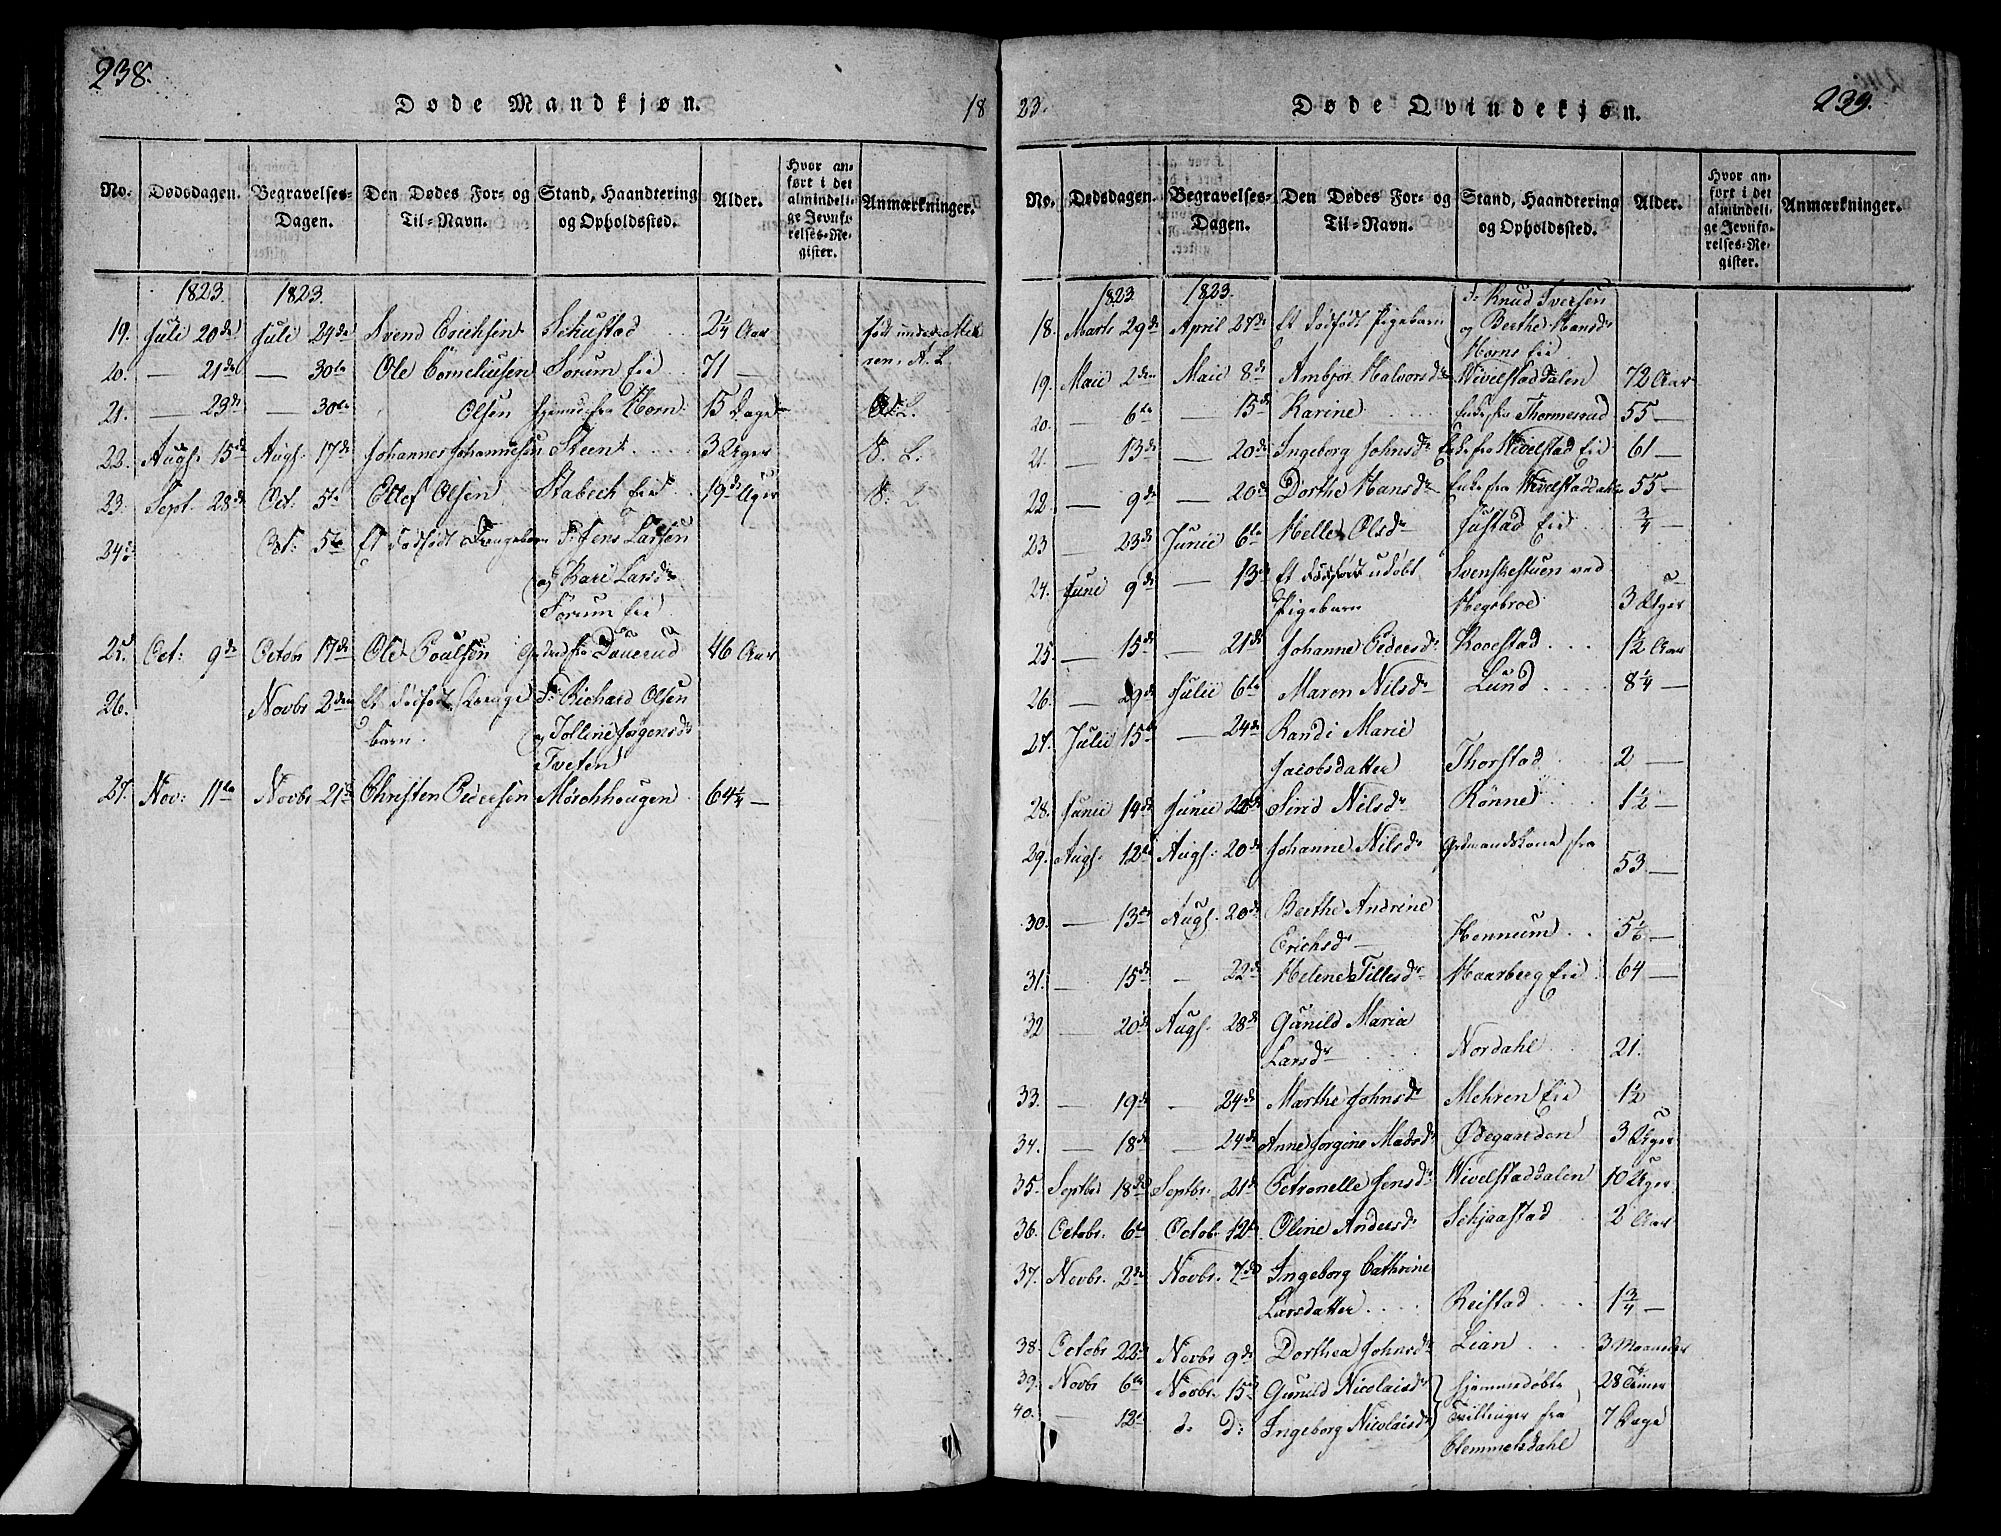 238.
Døde Mandkjøn.
18
No. Dødsdagen. Begravelses-Dagen. Den Dødes For- og Til-Navn. Stand, Haandtering og Opholdssted. Alder. Hvor anført i det almindelige Jevnførelses-Register. Anmærkninger.
1823. 1823.
19. Juli 20de Juli 24de Svend Erichsen 2¼ Aar
20. — 21de — 30te Ole Corneliussen Sorum Eie 71 —
21. — 23de — 30te Olsen fra Horn 15 Dage
22. Augs. 15de Augs. 17de Johannes Johannesen Steen 3 Uger
23. Sept. 28de Oct. 5te Ellef Olsen Stabech Eie 19 Uger
24. Oct. 5te Et dødfødt Drengebarn F. Jens Larsen
og Kari Larsdr
Sorum Eie
25. Oct: 9de Octobr 17de Ole Poulsen fra Daverud 46 Aar
26. Novbr 2den Et dødfødt Drenge F: Richard Olsen
barn. og Jolline Jørgensdr
Tveten
27. Nov: 11te Novbr 21de Christen Pedersen Mørchhougen 64¼ —
23.
Døde Qvindekjøn.
239.
No. Dødsdagen. Begravelses-Dagen. Den Dødes For- og Til-Navn. Stand, Haandtering og Opholdssted. Alder. Hvor anført i det almindelige Jevnførelses-Register. Anmærkninger.
1823 1823. Knud Iversen
18. Marts 29de April 27de Et dødfødt Pigebarn og Berthe Hansdr
Horns Eie
19. Maii 2den Maii 8de Ambjør Halvorsdr Wivelstaddalen 72 Aar
20. — 6te — 15de Karine Enke fra Thormesrud 55 —
21. — 13de — 20de Ingeborg Johnsdr Enke fra Wivelstad Eie 61 —
22. — 9de — 20de Dorthe Hansdr Enke fra Wivelstaddalen 55 —
23 — 23de Junii 6te Helle Olsdr Justad Eie ¾
24. Junii 9de — 13de Et dødfødt udøbt Svenskestuen ved
Pigebarn Hegsbroe 3 Uger
25. — 15de — 21de Johanne Pedersdr Rovestad 1½ Aar
26. — 29de Julii 6te Maren Nilsdr Lund 8¼ —
27. Julii 15de — 24de Randi Marie
Jacobsdatter Thorstad 2 —
28. Junii 14de Junii 22de Siri Nilsdr Rønne 1½ —
29. Augs. 12te Augs: 20de Johanne Nilsdr Grdmandskone fra
53 —
30. — 13de Augs. 20de Berthe Andrine
Erichsdr Hennum 5⅙ —
31. — 15de — 22de Helene Tillesdr Haarberg Eie 64 —
32 — 20de Augs. 28de Gunild Maria
Larsdr Nordahl 21.
33. — 19de — 24de Marthe Johnsdr Mehren Eie 1½
34. — 18de — 24de Anne Jørgine Madsdr Ødegaarden 3 Uger
35. Septbr 18de Septbr. 21de Petronelle Jensdr Wivelstaddalen 10 Uger.
36. Octobr. 6te Octobr. 12te Oline Andersdr Schjaastad 2 Aar
37. Novbr. 2den Novbr. 7de Ingeborg Cathrine
Larsdatter Reistad 1¾ —
38. Octobr 22de Novbr 9de Dorthea Johnsdr Lian 3 Maaneder
39. Novbr 6te Novbr. 15de Gunild Nicolaisdr hjemmedøbte 28 Timer
40. — 12te d. D: Ingeborg Nicolaisdr Tvillinger fra 7 Dage
Clemmetsdahl